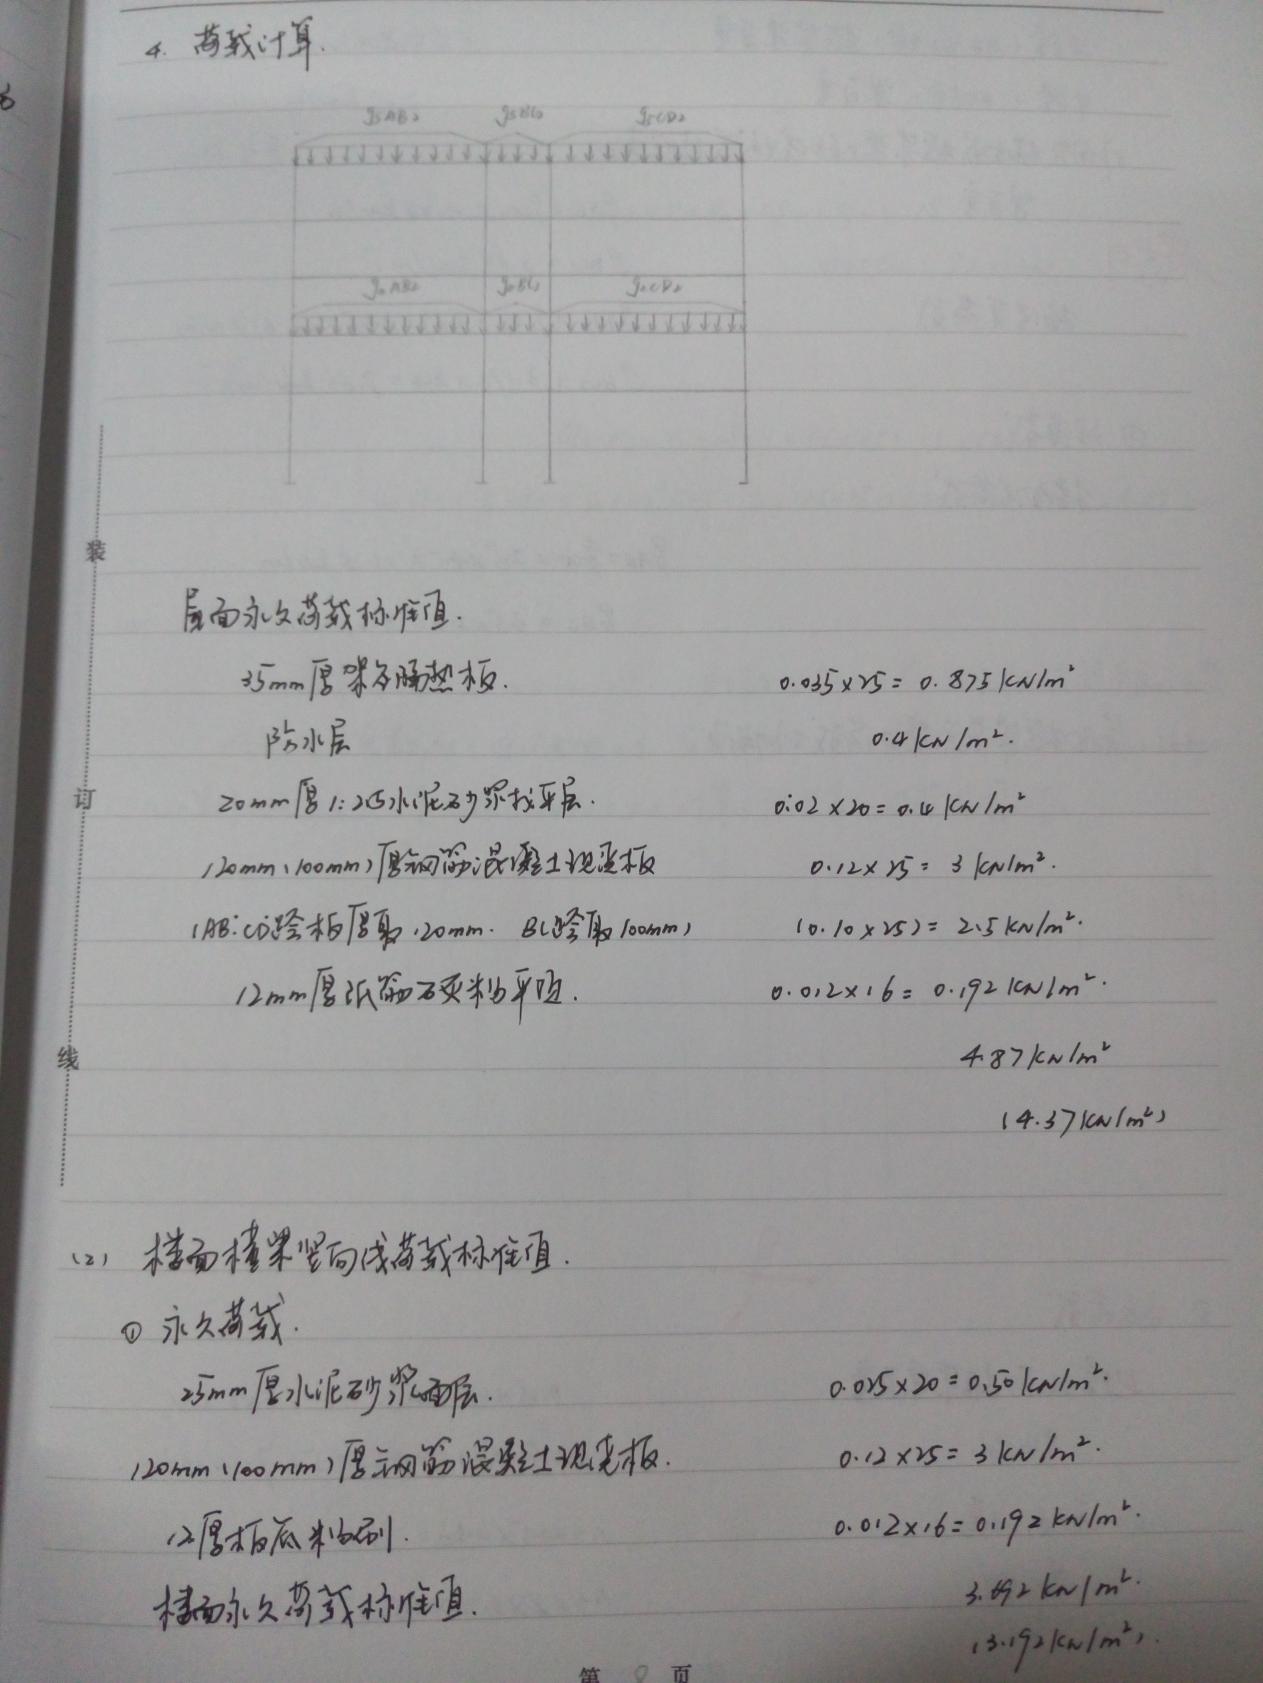 4. 荷载计算.
g5AB2 g5BC2 g5CD2
gAB2 gBC2 gCD2
装
屋面永久荷载标准值.
35mm厚架空隔热板. 0.035×25=0.875kN/m²
防水层 0.4kN/m².
订
20mm厚1:2.5水泥砂浆找平层. 0.02×20=0.4kN/m²
120mm(100mm)厚钢筋混凝土现浇板 0.12×25=3kN/m².
(AB.CD跨板厚取120mm. BC跨取100mm) (0.10×25)=2.5kN/m².
12mm厚纸筋石灰粉平顶. 0.012×16=0.192kN/m².
线
4.87kN/m²
(4.37kN/m²)
(2) 楼面横梁竖向线荷载标准值.
① 永久荷载.
25mm厚水泥砂浆面层. 0.025×20=0.50kN/m².
120mm(100mm)厚钢筋混凝土现浇板. 0.12×25=3kN/m².
12厚板底粉刷. 0.012×16=0.192kN/m².
楼面永久荷载标准值. 3.692kN/m².
(3.192kN/m²).
第 8 页